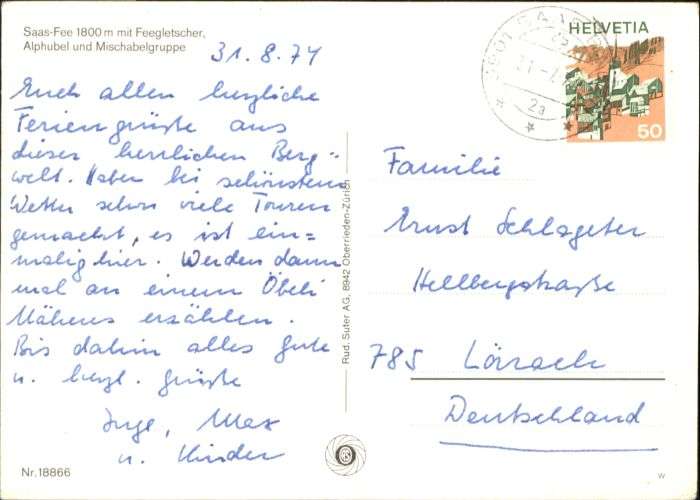 Saas-Fee 1800 m mit Feegletscher,
Alphubel und Mischabelgruppe
31.8.74
Euch allen herzliche
Feriengrüße aus
dieser herrlichen Berg=
welt. Haben bei schönstem
Wetter schon viele Touren
gemacht, es ist ein=
malig hier. Werden dann
mal an einem
erzählen.
Bis dahin alles Gute
u. herzl. Grüße
Inge, Max
u. Kinder
Nr. 18866
Rud. Suter AG, 8942 Oberrieden-Zürich
HELVETIA
50
2a
Familie
Ernst Schlageter
Hellbergstraße
785 Lörrach
Deutschland
W